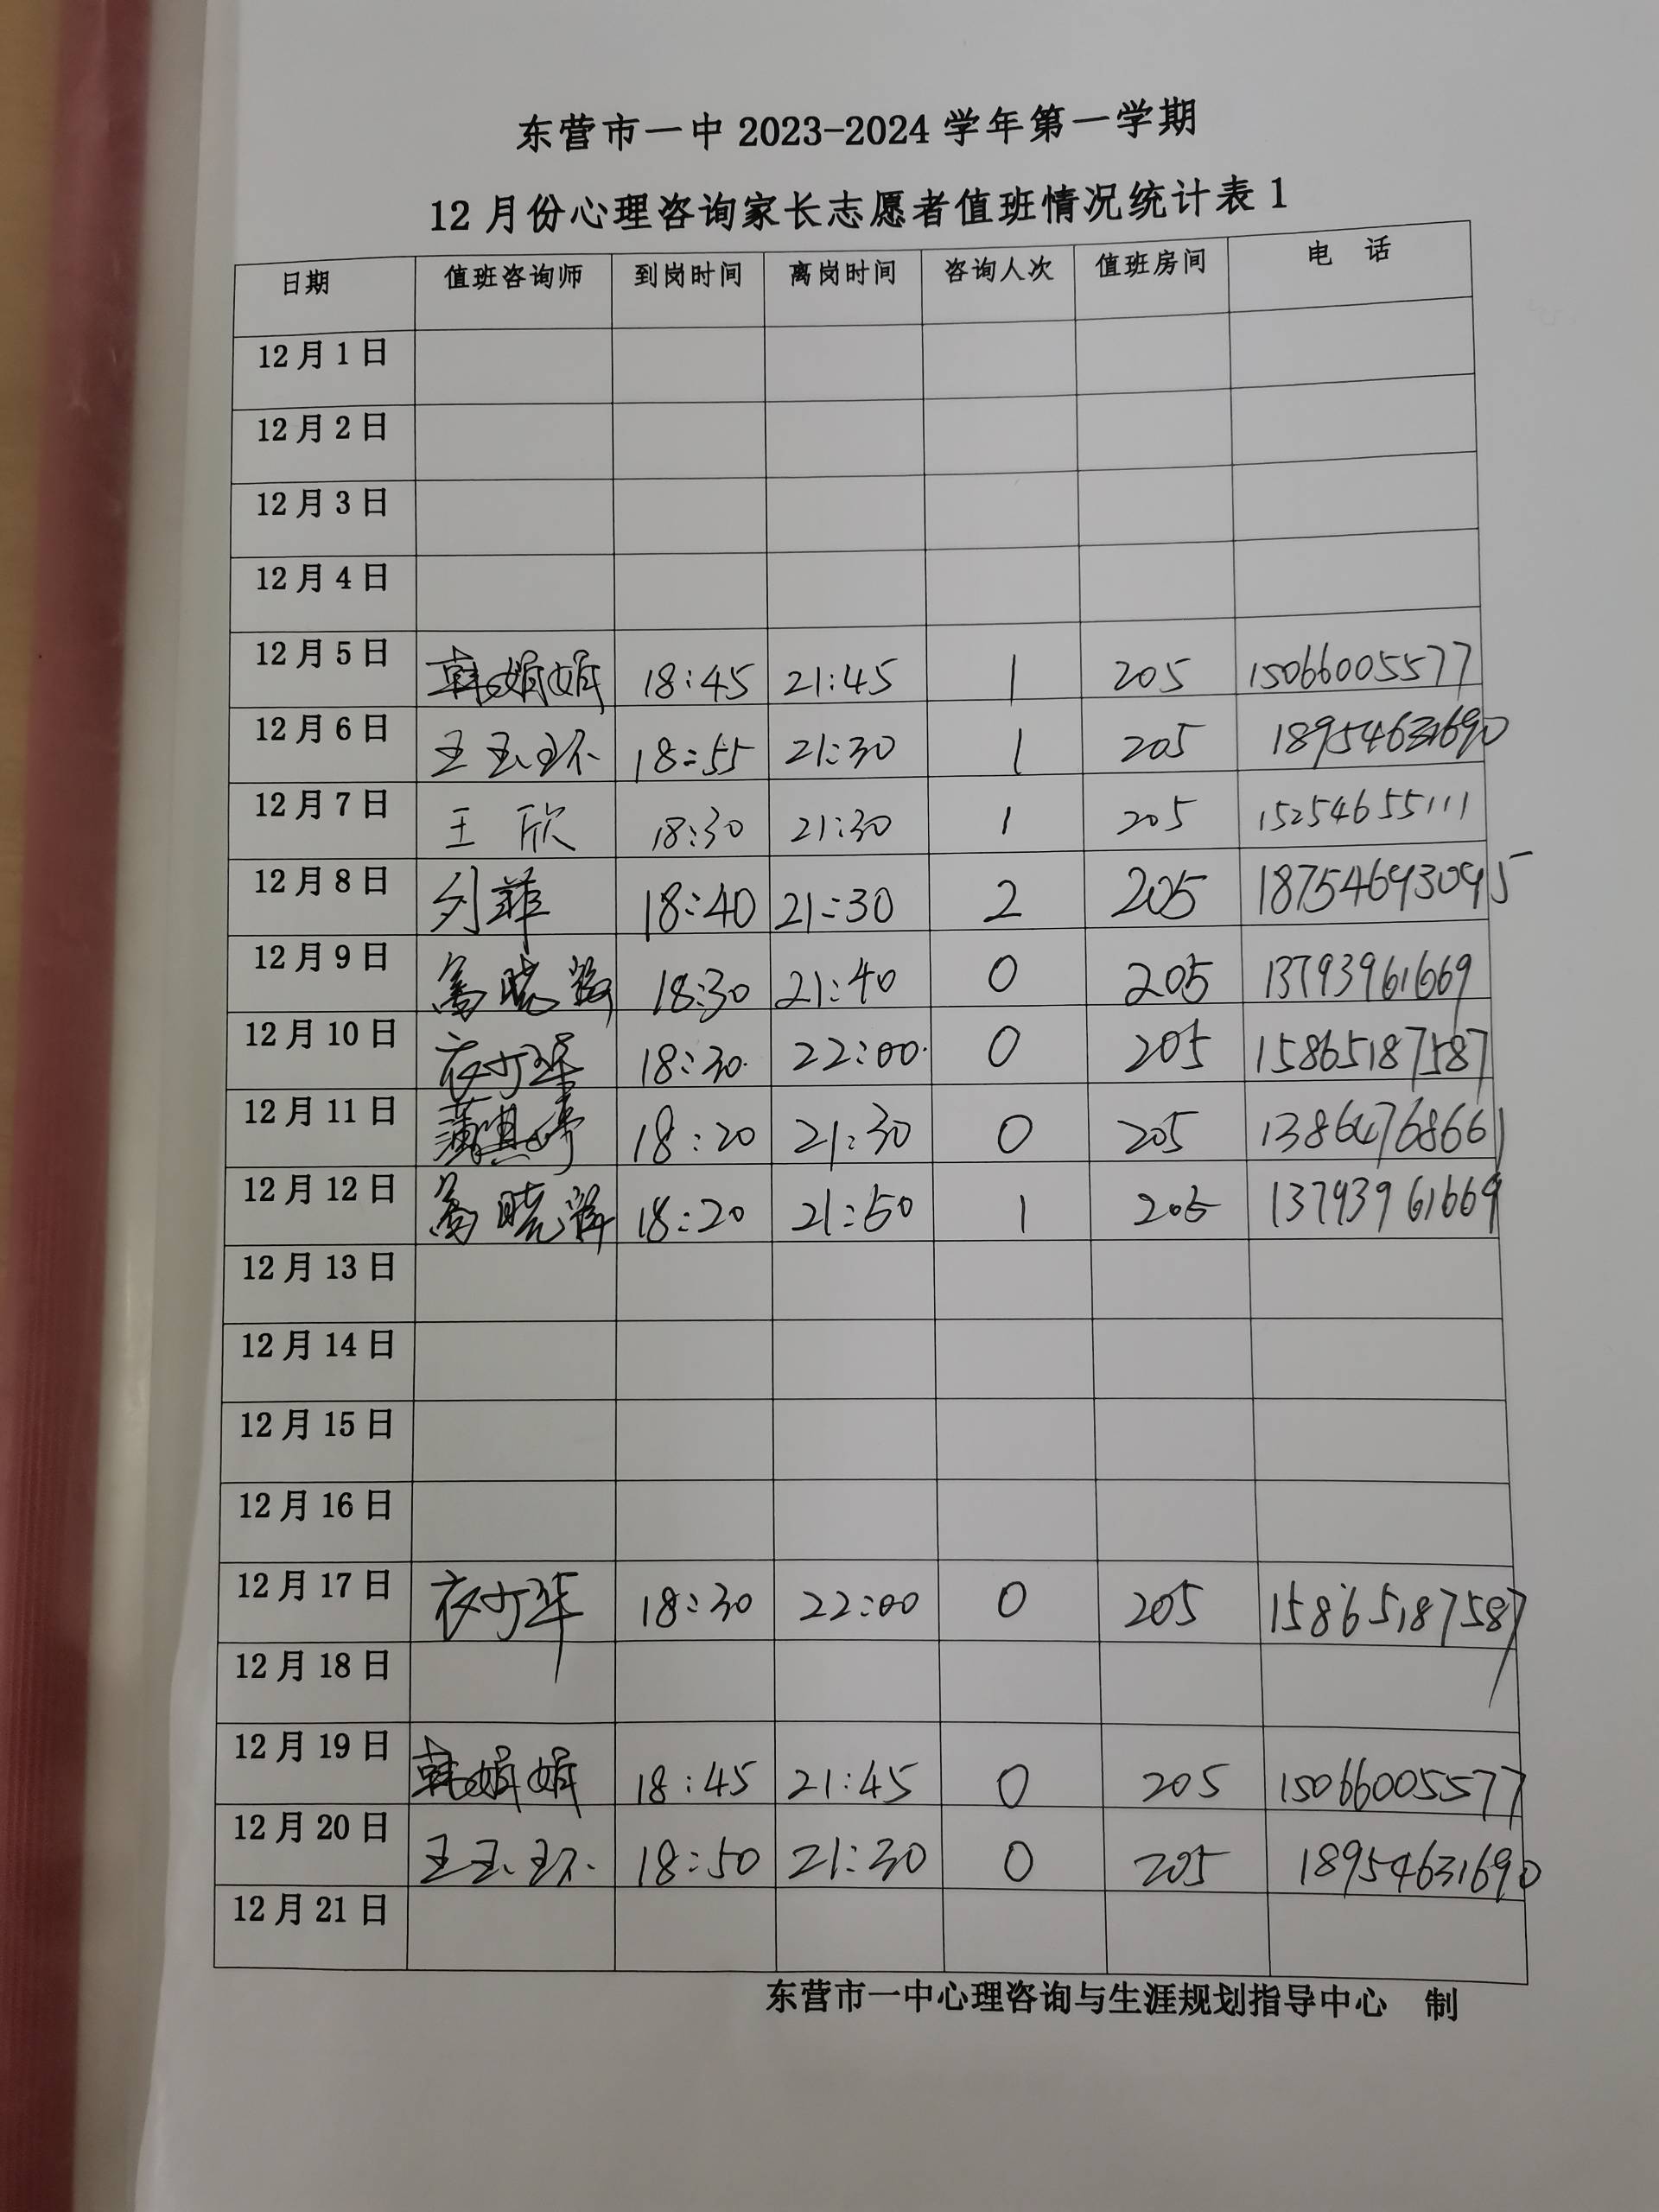 东营市一中 2023-2024 学年第一学期
12 月份心理咨询家长志愿者值班情况统计表 1
日期 值班咨询师 到岗时间 离岗时间 咨询人次 值班房间 电 话
12 月 1 日
12 月 2 日
12 月 3 日
12 月 4 日
12 月 5 日 韩娟娟 18:45 21:45 1 205 15066005577
12 月 6 日 王玉环 18:55 21:30 1 205 18954631690
12 月 7 日 王欣 18:30 21:30 1 205 15254655111
12 月 8 日 刘菲 18:40 21:30 2 205 18754693095
12 月 9 日 18:30 21:40 0 205 13793961669
12 月 10 日 18:30 22:00 0 205 15865187587
12 月 11 日 18:20 21:30 0 205 13864768661
12 月 12 日 18:20 21:50 1 205 13793961669
12 月 13 日
12 月 14 日
12 月 15 日
12 月 16 日
12 月 17 日 18:30 22:00 0 205 15865187587
12 月 18 日
12 月 19 日 韩娟娟 18:45 21:45 0 205 15066005577
12 月 20 日 王玉环 18:50 21:30 0 205 18954631690
12 月 21 日
东营市一中心理咨询与生涯规划指导中心 制